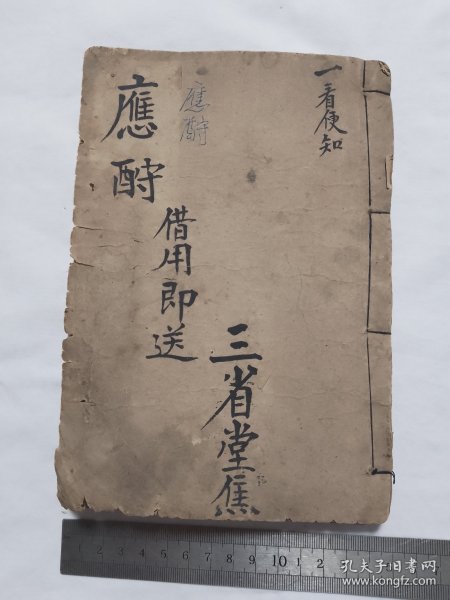 一看便知
應酧
應酧
借用即送
三省堂焦
1 2 3 4 5 6 7 8 9 10 11 12
孔夫子旧书网
www.kongfz.com